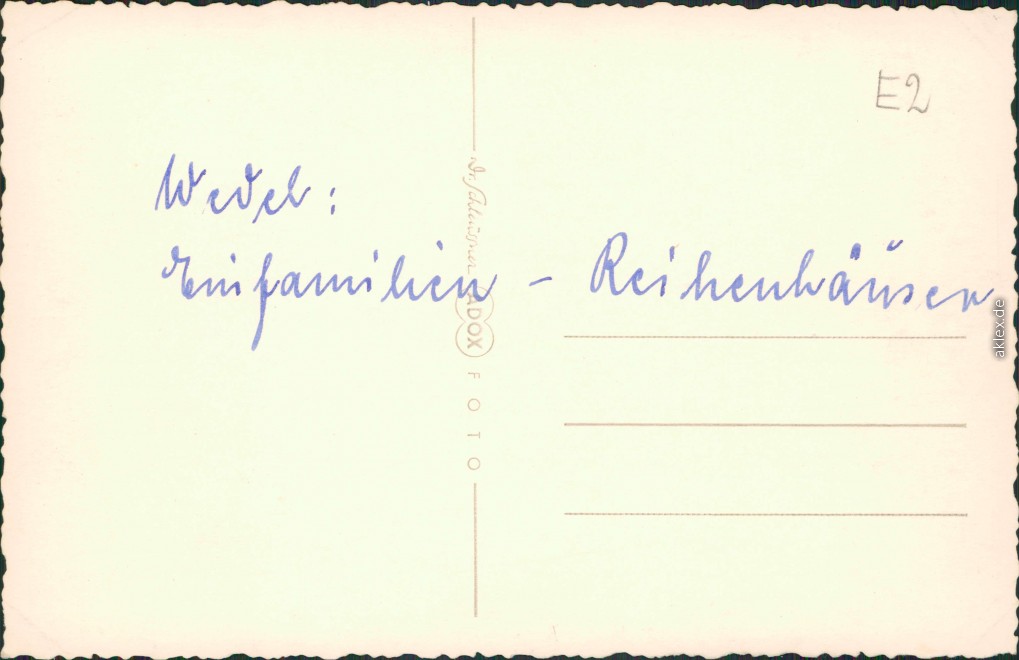 E2
Wedel:
Einfamilien - Reihenhäuser
Dr. Schleussner ADOX FOTO
aklex.de